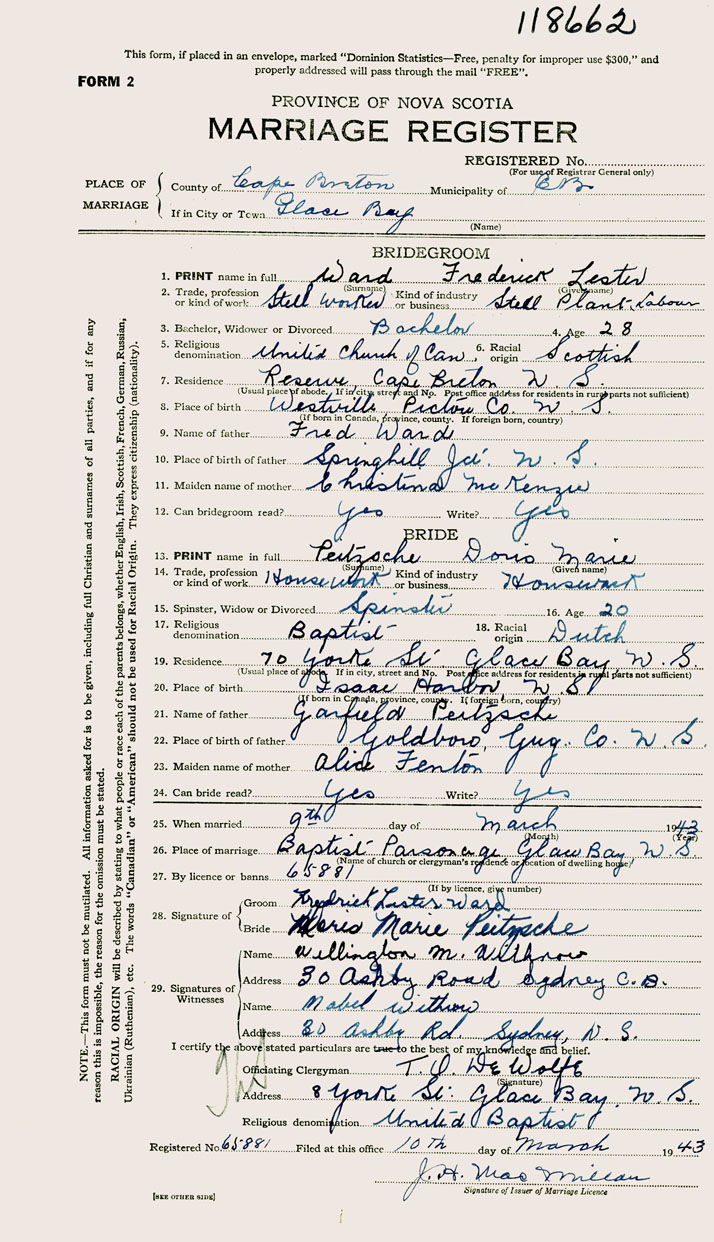 118662
This form, if placed in an envelope, marked "Dominion Statistics—Free, penalty for improper use $300," and
properly addressed will pass through the mail "FREE".
FORM 2
PROVINCE OF NOVA SCOTIA
MARRIAGE REGISTER
REGISTERED No.
(For use of Registrar General only)
PLACE OF MARRIAGE
County of Cape Breton Municipality of C B
If in City or Town Glace Bay
(Name)
BRIDEGROOM
1. PRINT name in full Ward Frederick Lester
(Surname) (Given name)
2. Trade, profession or kind of work Steel worker Kind of industry or business Steel Plant, Labour
3. Bachelor, Widower or Divorced Bachelor 4. Age 28
5. Religious denomination United Church of Can. 6. Racial origin Scottish
7. Residence Reserve, Cape Breton N. S.
(Usual place of abode. If in city, street and No. Post office address for residents in rural parts not sufficient)
8. Place of birth Westville, Pictou Co. N. S.
(If born in Canada, province, county. If foreign born, country)
9. Name of father Fred Ward
10. Place of birth of father Springhill Jct. N. S.
11. Maiden name of mother Christina McKenzie
12. Can bridegroom read? Yes Write? Yes
BRIDE
13. PRINT name in full Peitzsche Doris Marie
(Surname) (Given name)
14. Trade, profession or kind of work Housework Kind of industry or business Housework
15. Spinster, Widow or Divorced Spinster 16. Age 20
17. Religious denomination Baptist 18. Racial origin Dutch
19. Residence 70 Yorke St. Glace Bay, N. S.
(Usual place of abode. If in city, street and No. Post office address for residents in rural parts not sufficient)
20. Place of birth Isaac Harbor N. S.
(If born in Canada, province, county. If foreign born, country)
21. Name of father Garfield Peitzsche
22. Place of birth of father Goldboro, Guy. Co. N. S.
23. Maiden name of mother Alice Fenton
24. Can bride read? Yes Write? Yes
25. When married 9th day of March 1943
(Month) (Year)
26. Place of marriage Baptist Parsonage Glace Bay, N. S.
(Name of church or clergyman's residence or location of dwelling house)
27. By licence or banns 65881
(If by licence, give number)
28. Signature of
Groom Fredrick Lester Ward
Bride Doris Marie Peitzsche
29. Signatures of Witnesses
Name Wellington M. Withrow
Address 30 Ashby Road Sydney C. B.
Name Mabel Withrow
Address 30 Ashby Rd. Sydney, N. S.
I certify the above stated particulars are true to the best of my knowledge and belief.
Officiating Clergyman T. O. DeWolfe
(Signature)
Address 8 Yorke St. Glace Bay, N. S.
Religious denomination United Baptist
Registered No. 65881 Filed at this office 10th day of March 1943
J. H. MacMillan
Signature of Issuer of Marriage Licence
[SEE OTHER SIDE]
NOTE.—This form must not be mutilated. All information asked for is to be given, including full Christian and surnames of all parties, and if for any
reason this is impossible, the reason for the omission must be stated.
RACIAL ORIGIN will be described by stating to what people or race each of the parents belongs, whether English, Irish, Scottish, French, German, Russian,
Ukrainian (Ruthenian), etc. The words "Canadian" or "American" should not be used for Racial Origin. They express citizenship (nationality).